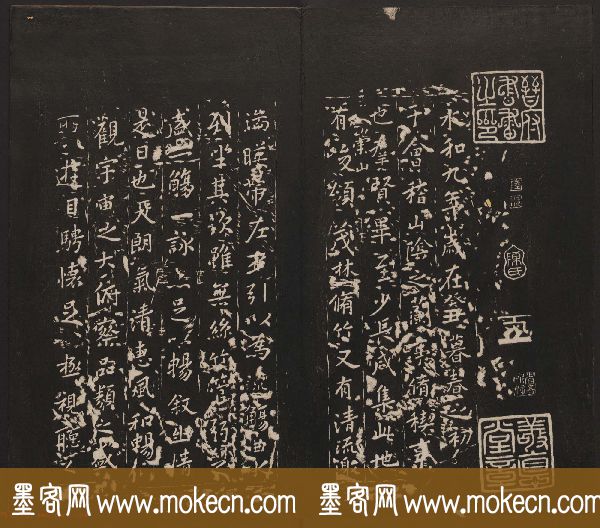 永和九年歲在癸暮春之初
于會稽山陰之蘭亭脩禊事
也羣賢畢至少長咸集此地
有崇山
有峻領茂林脩竹又有清流激
湍暎帶左右引以爲流觴曲水
列坐其次雖無絲竹管弦之
盛一觴一詠亦足以暢叙幽情
是日也天朗氣清惠風和暢仰
觀宇宙之大俯察品類之盛
所遊目騁懷足以極視聽之
墨客网 www.mokecn.com 墨客网 www.mokecn.com